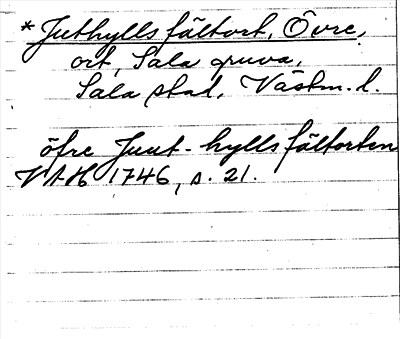 *Juthylls fältort, Övre,
ort, Sala gruva,
Sala stad, Västm. l.
öfre Juut-hylls fältorten
VAH 1746, s. 21.